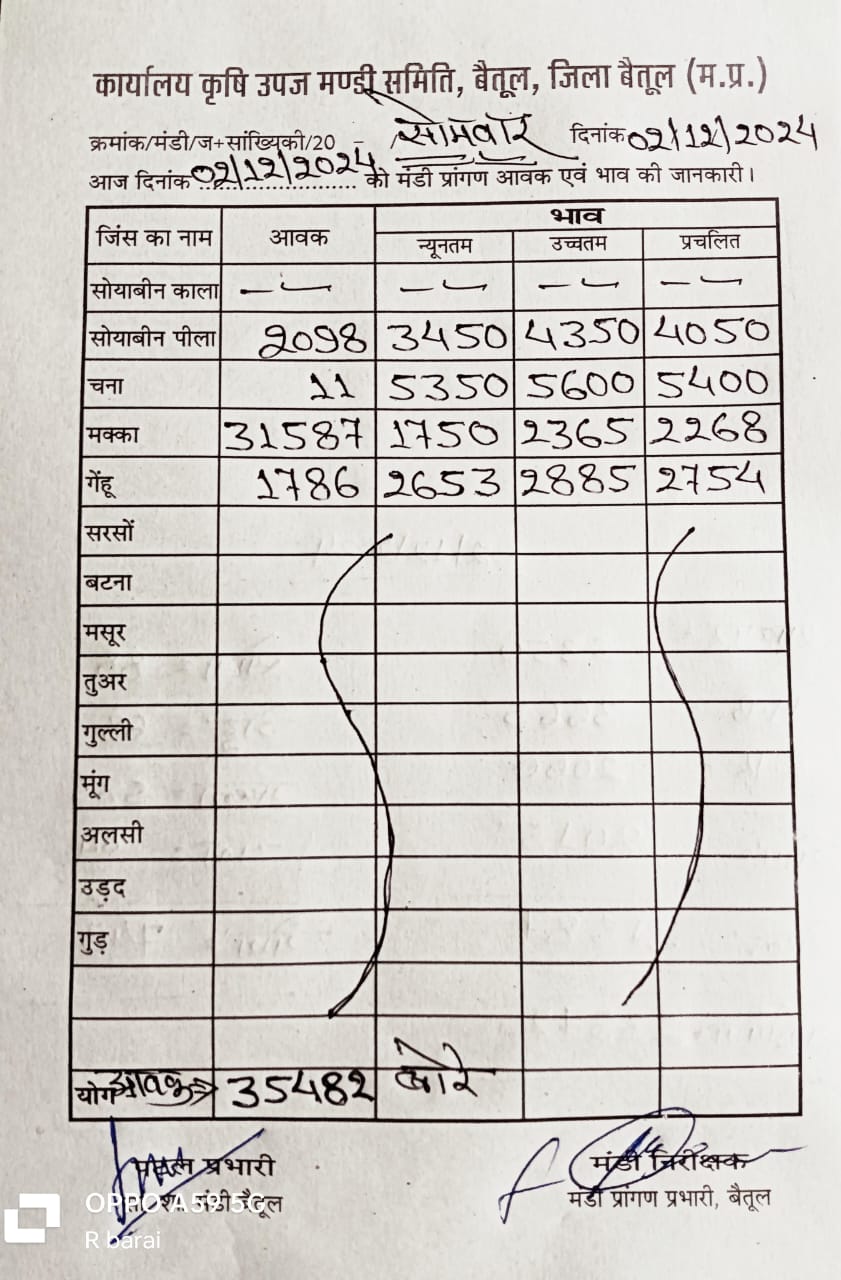 कार्यालय कृषि उपज मण्डी समिति, बैतूल, जिला बैतूल (म.प्र.)
क्रमांक/मंडी/ज+सांख्यिकी/20 सोमवार दिनांक 02/12/2024
आज दिनांक 02/12/2024 को मंडी प्रांगण आवक एवं भाव की जानकारी।
भाव
जिंस का नाम आवक न्यूनतम उच्चतम प्रचलित
सोयाबीन काला — — — —
सोयाबीन पीला 2098 3450 4350 4050
चना 11 5350 5600 5400
मक्का 31587 1750 2365 2268
गेंहू 1786 2653 2885 2754
सरसों
बटना
मसूर
तुअर
गुल्ली
मूंग
अलसी
उड़द
गुड़
योग आवक→ 35482 बोरे
प्रभारी मंडी निरीक्षक
मंडी बैतूल मंडी प्रांगण प्रभारी, बैतूल
OPPO A59 5G
R barai